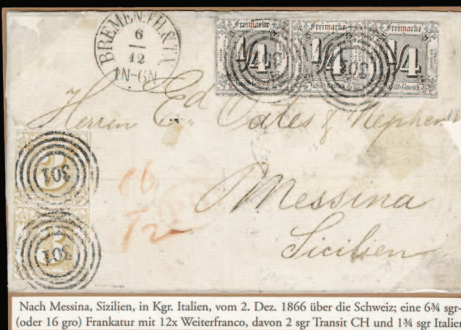 BREMEN.TH.&TX.
6
12
IN-6N
Freimarke
Freimarke
Freimarke
1/4
1/4
1/4
301
Herrn Ed Oates & Nephew
301
Messina
Sicilien
301
Nach Messina, Sizilien, in Kgr. Italien, vom 2. Dez. 1866 über die Schweiz; eine 6¾ sgr-
(oder 16 gro) Frankatur mit 12x Weiterfranco, davon 2 sgr Transit CH und 1¾ sgr Italien